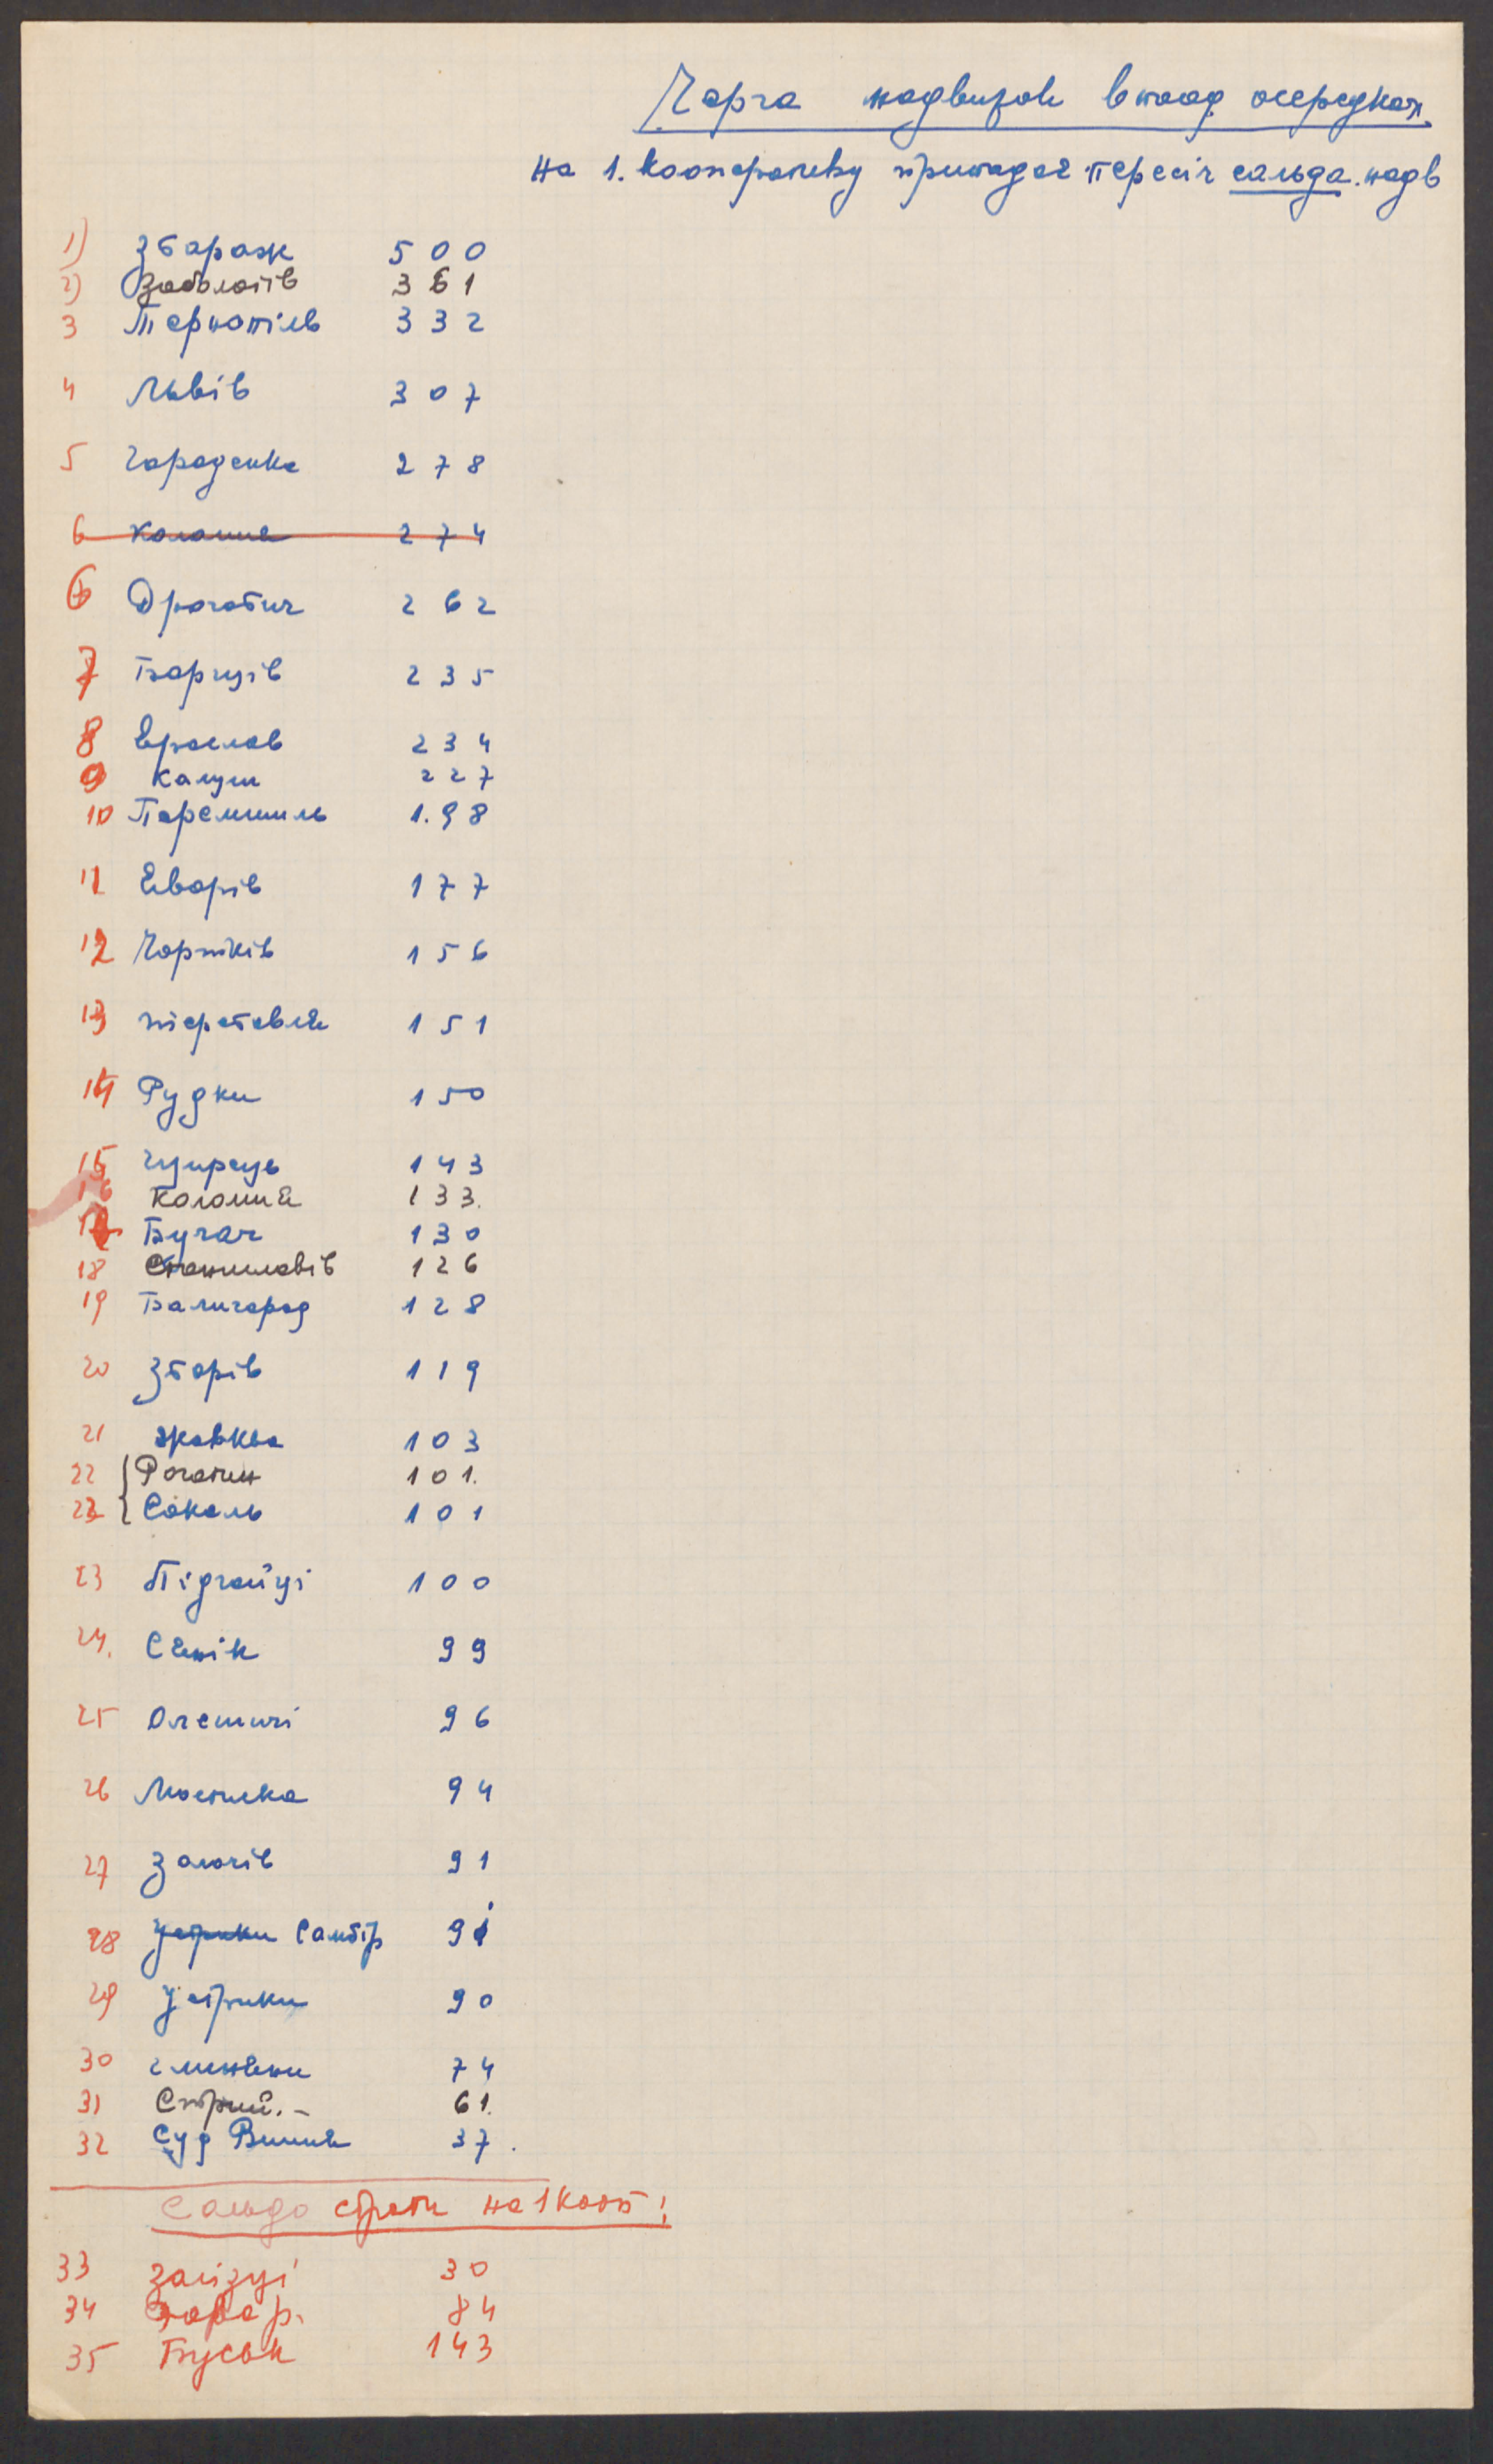 Черга надвижок в поод. осередках
на 1. кооперативу припадає пересіч сальда. надв
1) Збараж 500
2) Заболотів 361
3 Тернопіль 332
4 Львів 307
5 Городенка 278
6 Коломия 274
6 Дрогобич 262
7 Борщів 235
8 Ярослав 234
9 Калуш 227
10 Перемишль 1.98
11 Яворів 177
12 Чортків 156
13 тереговля 151
14 Рудки 150
15 Щирець 143
16 Коломия 133.
17 Бучач 130
18 Станиславів 126
19 Балигород 128
20 Зборів 119
21 Жовква 103
22 Рогатин 101.
23 Сокаль 101
23 Підгайці 100
24. Сянік 99
25 Олешичі 96
26 Мостиска 94
27 Золочів 91
28 Устрики Самбір 91
29 Устрики 90
30 Глиняни 74
31 Стрий. – 61.
32 Суд Вишня 37.
Сальдо страти на 1 кооп!
33 Залізці 30
34 84
35 Буськ 143